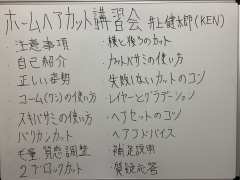 ホームヘアカット講習会 井上健太郎(KEN)
・注意事項
・自己紹介
・正しい姿勢
・コーム(クシ)の使い方
・スキバサミの使い方
・バリカンカット
・毛量 質感調整
・2ブロックカット
・横と後ろのカット
・カットバサミの使い方
・失敗しないカットのコツ
・レイヤーとグラデーション
・ヘアセットのコツ
・ヘアアドバイス
・補足説明
・質疑応答